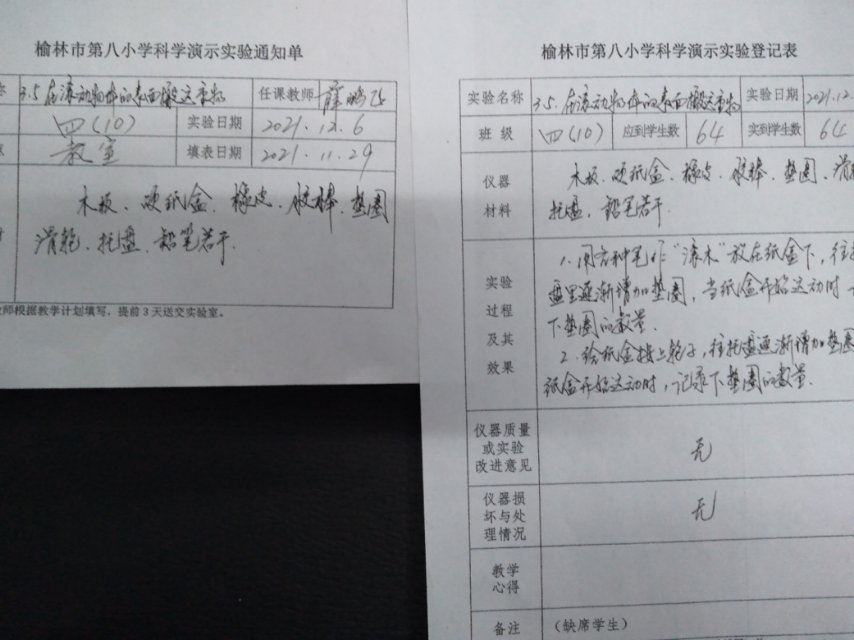 榆林市第八小学科学演示实验通知单
3.5在滚动物体的表面搬运重物 任课教师
四(10) 实验日期 2021.12.6
教室 填表日期 2021.11.29
木板、硬纸盒、橡皮、胶棒、垫圈
滑轮、托盘、铅笔若干.
师根据教学计划填写，提前3天送交实验室。
榆林市第八小学科学演示实验登记表
实验名称 3.5.在滚动物体的表面搬运重物 实验日期 2021.12.
班 级 四(10) 应到学生数 64 实到学生数 64
仪器
材料
木板、硬纸盒、橡皮、胶棒、垫圈、滑
托盘，铅笔若干.
实验
过程
及其
效果
1.用各种笔作"滚木"放在纸盒下，往
盘里逐渐增加垫圈，当纸盒开始运动时
下垫圈的数量.
2.给纸盒接上轮子，往托盘逐渐增加垫圈
纸盒开始运动时，记录下垫圈的数量.
仪器质量
或实验
改进意见
无
仪器损
坏与处
理情况
无
教学
心得
备注 （缺席学生）